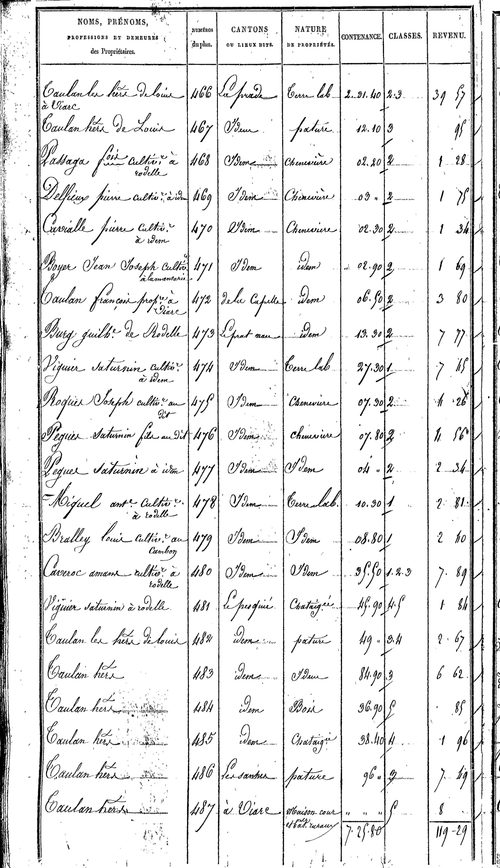 NOMS, PRÉNOMS, PROFESSIONS ET DEMEURES des Propriétaires. NUMÉROS du plan. CANTONS OU LIEUX DITS. NATURE DE PROPRIÉTÉS. CONTENANCE. CLASSES. REVENU.
Caulan les hérs de louis à Viarc 466 La prade Terre lab. 2. 31. 40 2.3 39 57
Caulan hérs de Louis 467 Idem pature 12.10 3 95
cultivr à rodelle 468 Idem Chenevière 02.20 2 1 28
Delfieux pierre cultivr à idem 469 Idem Chenevière 03 " 2 1 75
pierre cultivr à idem 470 Idem Chenevière 02.30 2 1 34
Boyer Jean Joseph cultivr 471 Idem idem 02.90 2 1 69
Caulan françois propre à Viarc 472 de la Capelle idem 06.50 2 3 80
Burg guilhe de Rodelle 473 idem 13.30 2 7 77
Viguier saturnin cultivr à idem 474 Idem Terre lab. 27.30 1 7 65
Roquier Joseph cultivr au dit 475 Idem Chenevière 07.30 2 4 26
Peguès saturnin fils au dit 476 Idem chenevière 07.80 2 4 56
Peguès saturnin à idem 477 Idem Idem 04 " 2 2 34
Miguel ante cultivr à rodelle 478 Idem Terre lab. 10.30 1 2 81
Bralley louis cultivr au Cambon 479 Idem Idem 08.80 1 2 80
amans cultivr à rodelle 480 Idem Idem 35.50 1.2.3 7. 89
Viguier saturnin à rodelle 481 Le pesquié Chataigée 45.90 4.5 1 84
Caulan les hérs de louis 482 idem pature 49 " 3.4 2. 67
Caulan hérs 483 idem Idem 84.90 3 6 62
Caulan hérs 484 idem Bois 36.90 5 85
Caulan hérs 485 idem Chataigée 38.40 4 1 96
Caulan hérs 486 pature 96 " 2 7. 69
Caulan hérs 487 à Viarc Maison cour et bât. ruraux " " " 5 8
7. 25.80 119 - 29